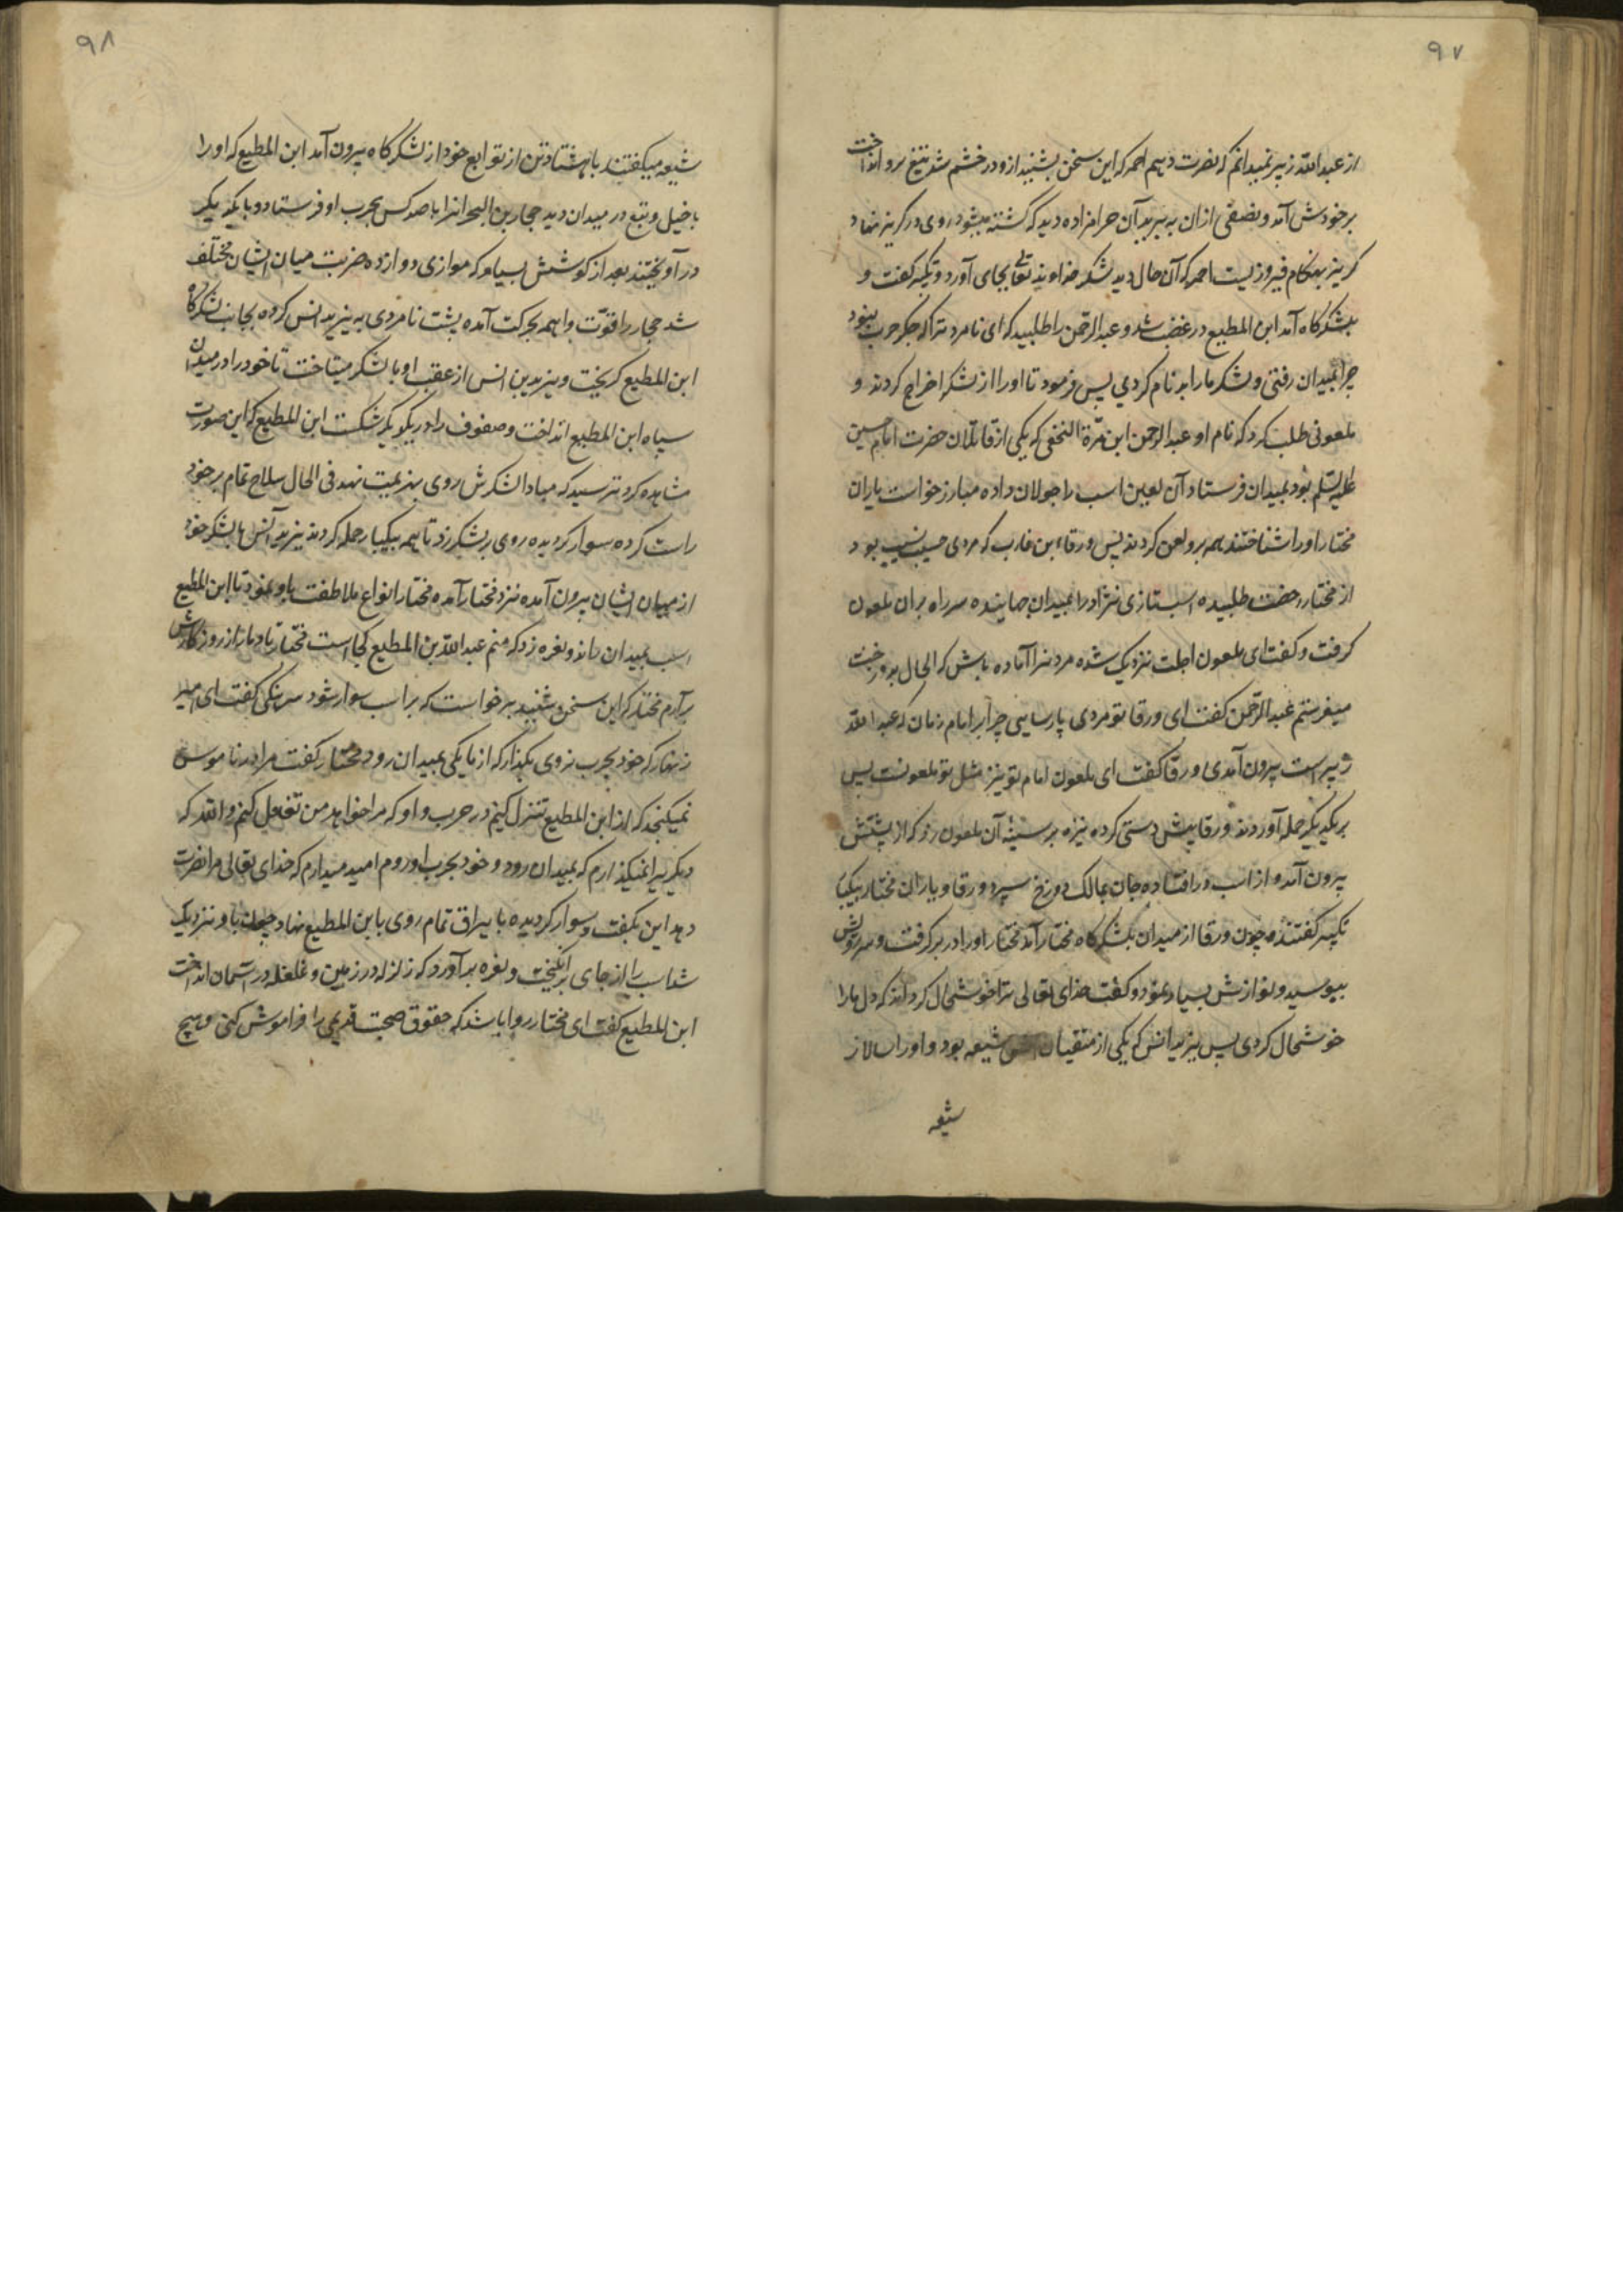 ۹۷
از عبدالله زبیر نمیدانم که نصرت دهیم احمر که این سخن بشنید ازو در خشم شد تیغ برو انداخت
بر خودش آمد و نصفی ازان به برید آن حرامزاده دید که کشته میشود روی در کریز نهاد
کریز بهنکام فیروزیست احمر که آن حال دید شکر خداوند تعالی بجای آورد و تکبیر کفت و
بلشکرکاه آمد ابن المطیع در غضب شد و عبدالرحمن را طلبید که ای نامرد ترا که جکر حرب نبود
چرا بمیدان رفتی و لشکر ما را بد نام کردی پس فرمود تا او را از لشکر اخراج کردند و
ملعونی طلب کرد که نام او عبدالرحمن ابن مرّة النخعی که یکی از قاتلان حضرت امام حسین
علیه السلم بود بمیدان فرستاد آن لعین اسب را جولان داده مبارز خواست یاران
مختار او را شناختند همه برو لعن کردند پس ورقاء بن غارب که مردی حسیب نسیب بود
از مختار رخصت طلبیده اسب تازی نژاد را بمیدان جهانیده سر راه بران ملعون
کرفت و کفت ای ملعون اجلت نزدیک شده مردنرا آماده باش که الحال بدوزخت
میفرستم عبدالرحمن کفت ای ورقا تو مردی پارسایی چرا بر امام زمان که عبدالله
زبیر است بیرون آمدی ورقا کفت ای ملعون امام تو نیز مثل تو ملعونست پس
بر یکدیکر حمله آوردند ورقا پیش دستی کرده نیزه بر سینهٔ آن ملعون زد که از پشتش
بیرون آمد و از اسب در افتاده جان بمالک دوزخ سپرد ورقا و یاران مختار بیکبار
تکبیر کفتند چون ورقا از میدان بلشکرکاه مختار آمد مختار او را در بر کرفت و سر و رویش
ببوسید و نوازش بسیار نمود و کفت خدای تعالی ترا خوشحال کرداند که دل ما را
خوشحال کردی پس یزید انس که یکی از متقیان شیعه بود و او را سالار
شیعه
۹۸
شیعه میکفتند با هشتاد تن از توابع خود از لشکرکاه بیرون آمد ابن المطیع که او را
با خیل و تبع در میدان دید حجار بن البحر انرا با صد کس بحرب او فرستاد و با یکدیکر
در آویختند بعد از کوشش بسیار که موازی دوازده ضربت میان ایشان مختلف
شد حجار را قوّت واهمه بحرکت آمده پشت نامردی به یزید انس کرده بجانب لشکرکاه
ابن المطیع کریخت و یزید بن انس از عقب او با لشکر میتاخت تا خود را در میدان
سپاه ابن المطیع انداخت و صفوف را در یکدیکر شکست ابن المطیع که این صورت
مشاهده کرد بترسید که مبادا لشکرش روی بهزیمت نهد فی الحال سلاح تمام بر خود
راست کرده سوار کردیده روی بر لشکر زد تا همه بیکبار حمله کردند یزید انس با لشکر خود
از میان ایشان بیرون آمده نزد مختار آمده مختار انواع ملاطفت باو نمود تا ابن المطیع
اسب بمیدان راند و نعره زد که منم عبدالله بن المطیع کجا است مختار تا دمار از روزکارش
برآرم مختار که این سخن شنید برخواست که بر اسب سوار شود سرهنکی کفت ای امیر
زنهار که خود بحرب نروی بکذار که از ما یکی بمیدان رود مختار کفت مرا در ناموس
نمیکنجد که از ابن المطیع تنزل کنم در حرب و او که مرا خواهد من تغفل کنم والله که
دیکریرا نمیکذارم که بمیدان رود و خود بحرب او روم امید میدارم که خدای تعالی مرا نصرت
دهد این بکفت و سوار کردیده با یراق تمام روی بابن المطیع نهاد چون باو نزدیک
شد اسب را از جای برانکیخت و نعره برآورد که زلزله در زمین و غلغله در آسمان انداخت
ابن المطیع کفت ای مختار روا باشد که حقوق صحبت قدیمی را فراموش کنی و هیچ